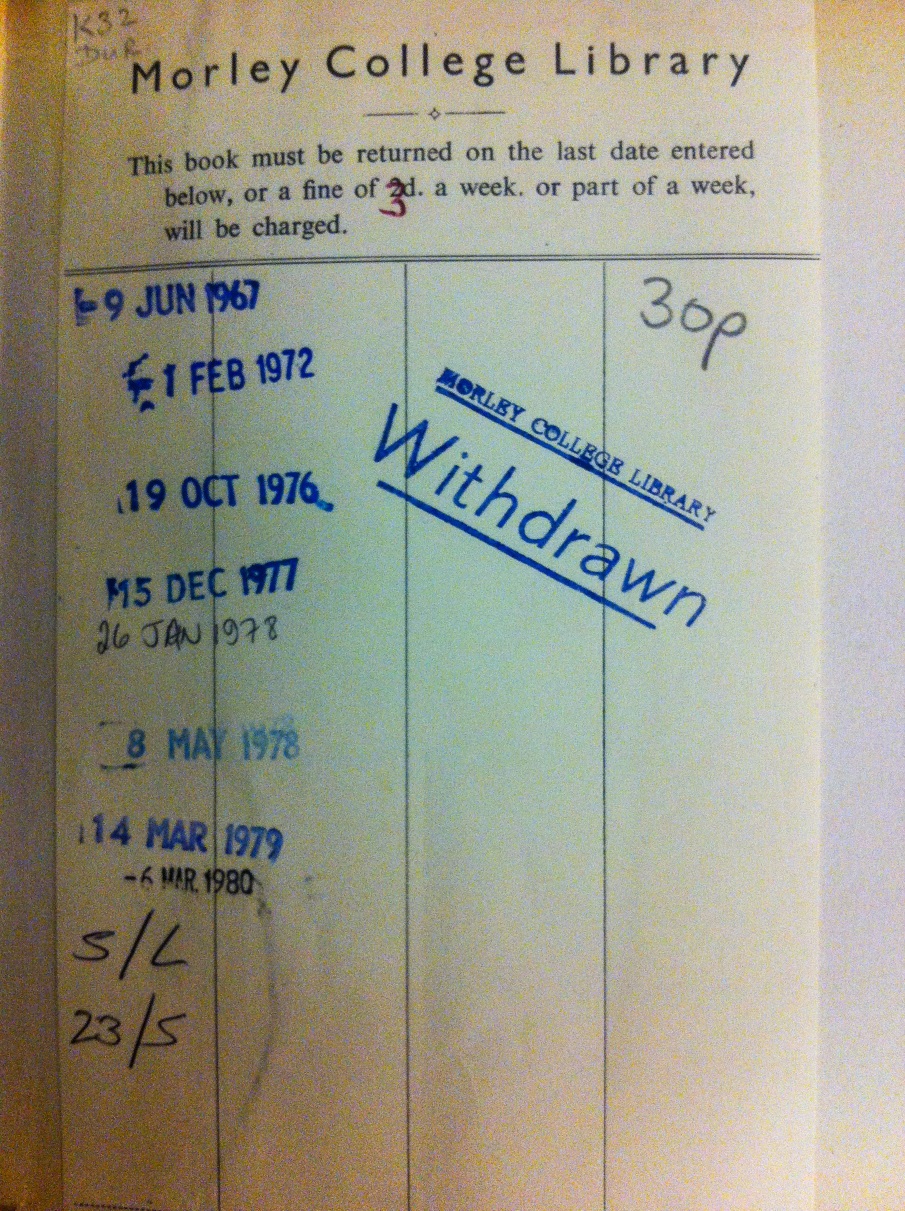 K32
DUR
Morley College Library
This book must be returned on the last date entered
below, or a fine of 3d. a week. or part of a week,
will be charged.
-9 JUN 1967
30p
1 FEB 1972
MORLEY COLLEGE LIBRARY
Withdrawn
19 OCT 1976
15 DEC 1977
26 JAN 1978
8 MAY 1978
14 MAR 1979
-6 MAR. 1980
S/L
23/5